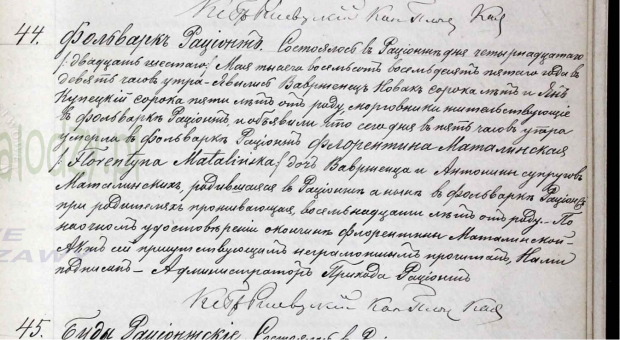 44.
Фольваркъ Раціонжъ. Состоялось въ Раціонжѣ дня четырнадцатаго
/:двадцать шестаго:/ Мая тысяча восемьсотъ восемьдесятъ пятаго года въ
девять часовъ утра. Явились Вавржинецъ Новакъ сорока лѣтъ и Янъ
Купецкій сорока пяти лѣтъ отъ роду, морговники жительствующіе
въ фольваркѣ Раціонжъ и объявили что сего дня въ пять часовъ утра
умерла въ Фольваркѣ Раціонжъ Флорентина Маталинская
/:Florentyna Matalińska:/ дочь Вавржинца и Антонины супруговъ
Маталинскихъ, родившаяся въ Раціонжѣ а нынѣ въ фольваркѣ Раціонжъ
при родителяхъ проживающая, восемьнадцати лѣтъ отъ роду. - По
наочномъ удостовѣреніи о кончинѣ Флорентины Маталинской -
Актъ сей присутствующимъ неграмотнымъ прочитанъ, Нами
подписанъ - Администраторъ Прихода Раціонжъ
45.
Биды Раціонжскіе. Состоялось въ